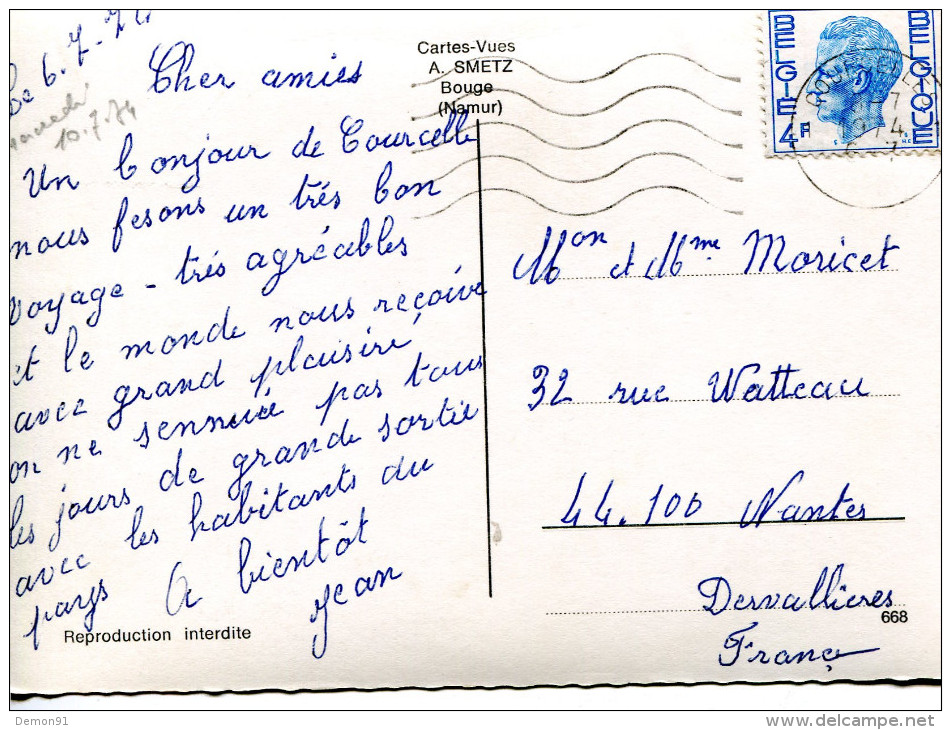 Le 6.7.74
mercredi
10.7.74
Cher amies
Un bonjour de Courcelle
nous fesons un trés bon
voyage - trés agréables
et le monde nous reçoive
avec grand plaisiré
on ne sennuié pas tous
les jours de grande sortie
avec les habitants du
pays A bientôt
Jean
Reproduction interdite
Cartes-Vues
A. SMETZ
Bouge
(Namur)
BELGIE 4F BELGIQUE
1974
Mon et Mme Moricet
32 rue Watteau
44.100 Nantes
Dervallieres
668
France
Demon91
delcampe.net